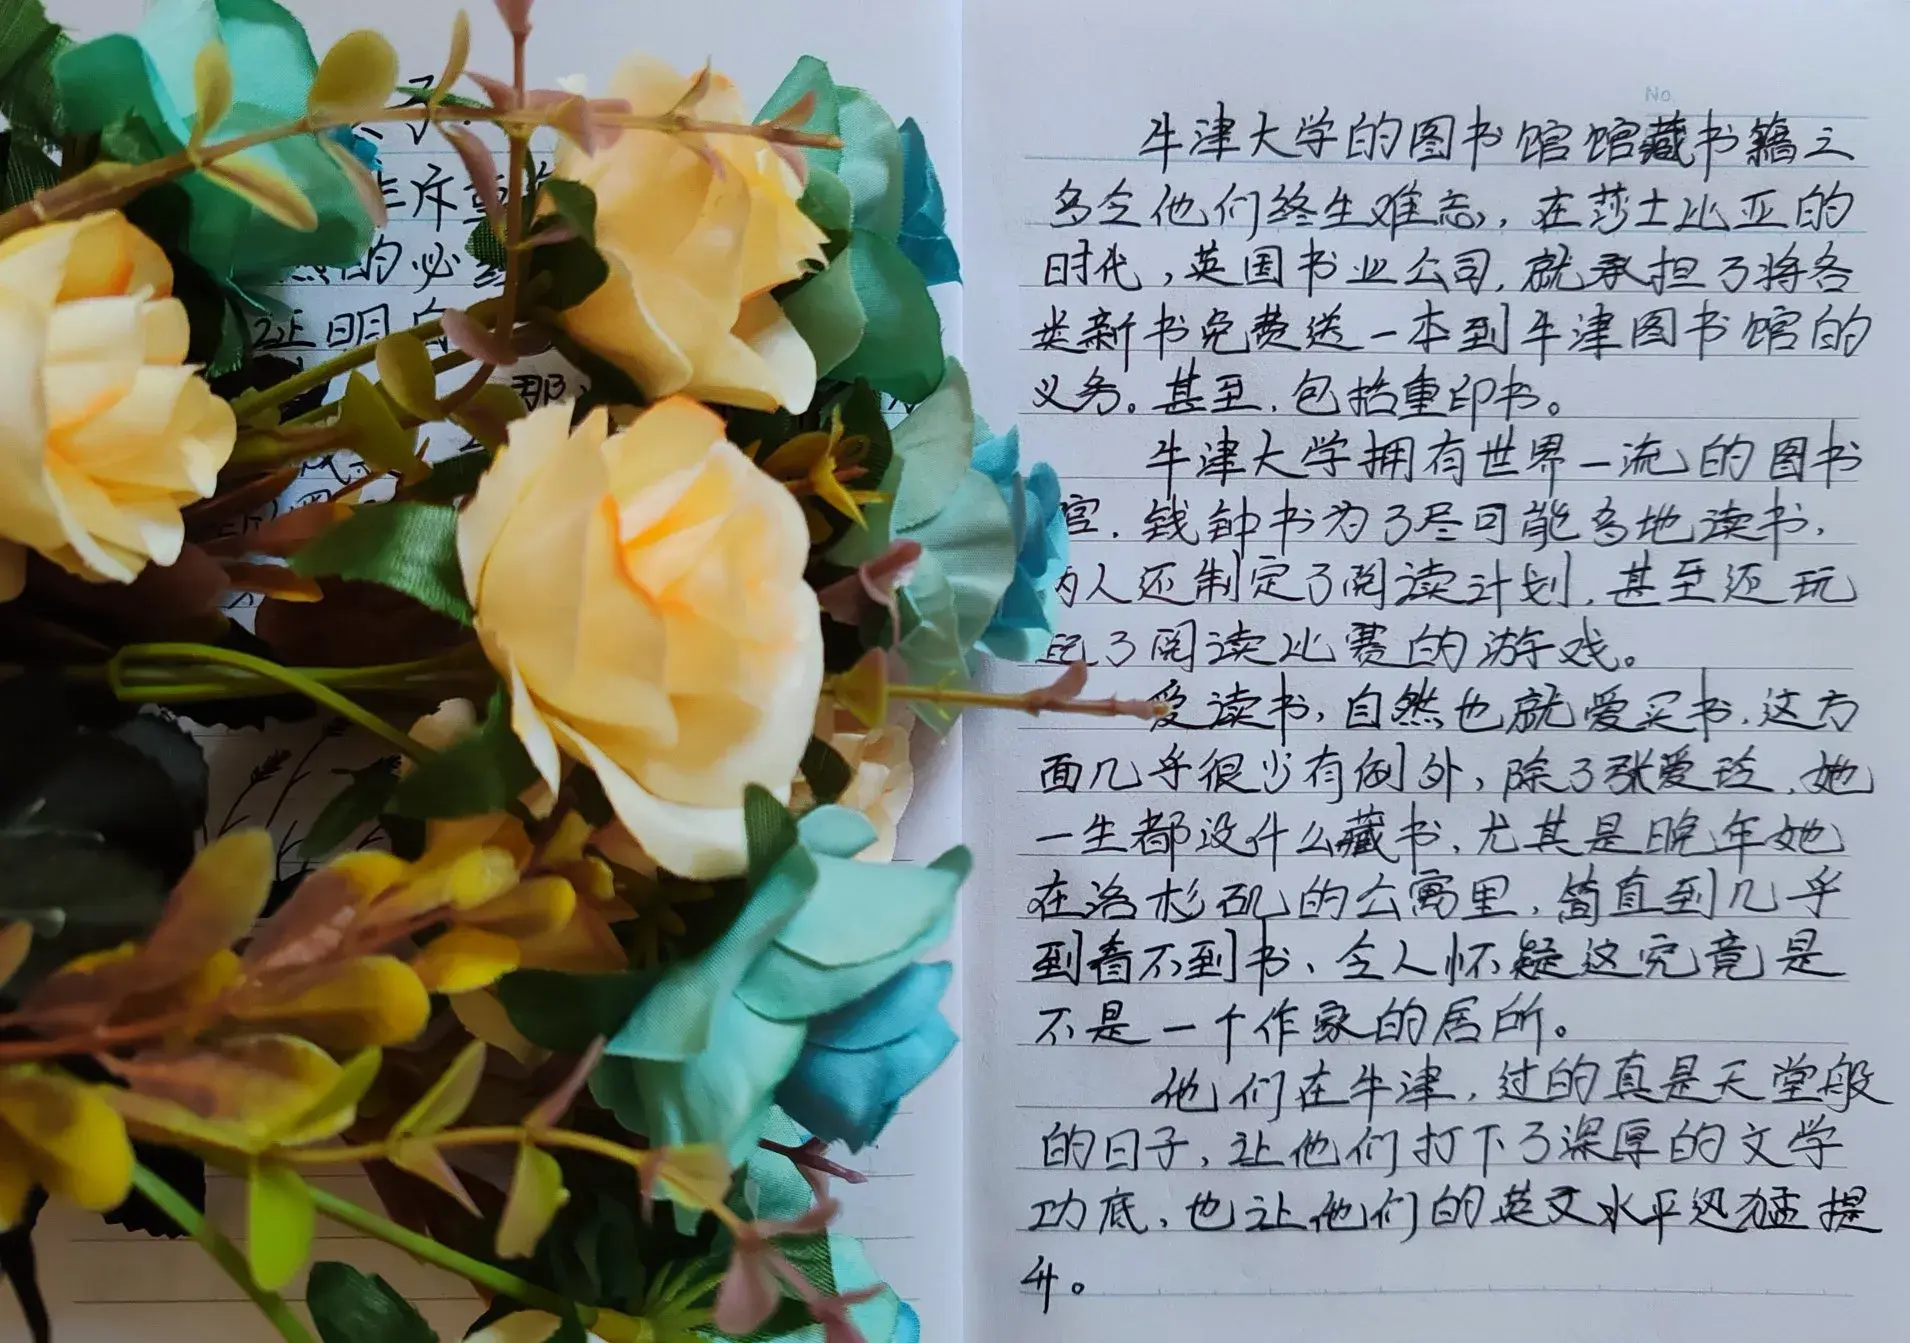 No
牛津大学的图书馆馆藏书籍之
多令他们终生难忘,在莎士比亚的
时代,英国书业公司,就承担了将各
类新书免费送一本到牛津图书馆的
义务。甚至,包括重印书。
牛津大学拥有世界一流的图书
钱钟书为了尽可能多地读书,
人还制定了阅读计划,甚至还玩
了阅读比赛的游戏。
爱读书,自然也就爱买书,这方
面几乎很少有例外,除了张爱玲,她
一生都没什么藏书,尤其是晚年她
在洛杉矶的公寓里,简直到几乎
到看不到书、令人怀疑这究竟是
不是一个作家的居所。
他们在牛津,过的真是天堂般
的日子,让他们打下了深厚的文学
功底,也让他们的英文水平迅猛提
升。
斥
的必
证明
那